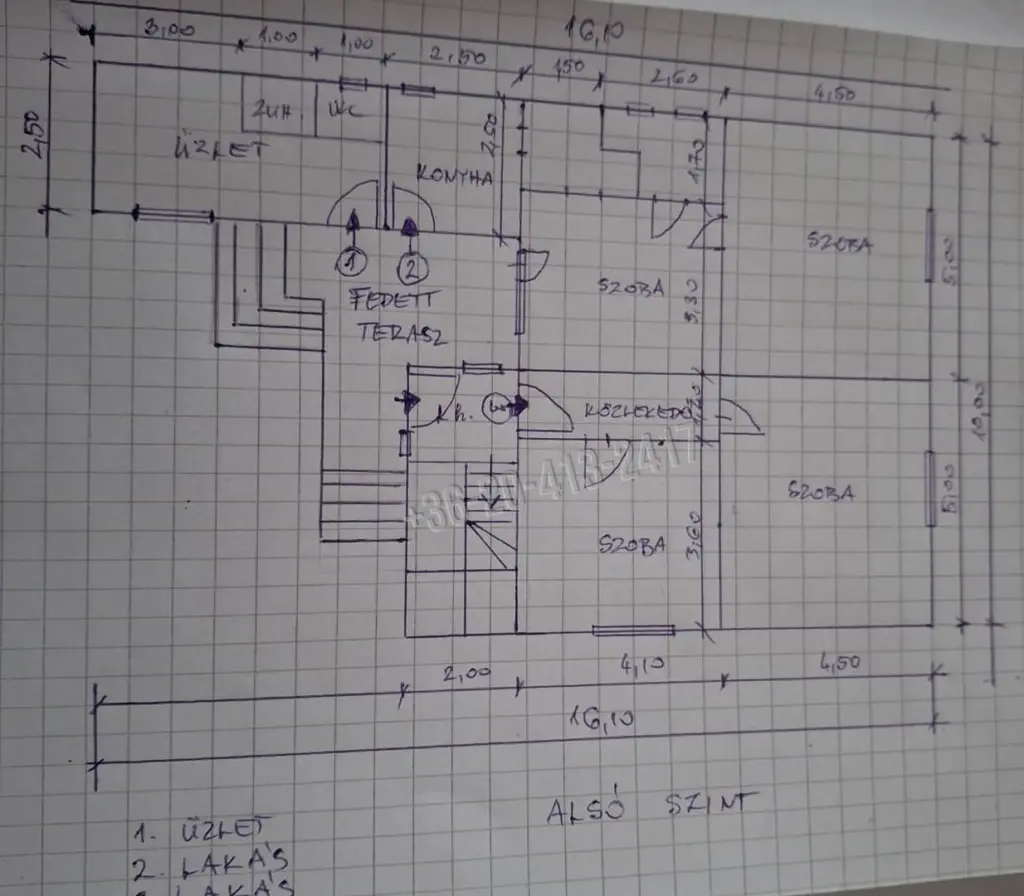 16,10
3,00 1,00 1,00 2,50 1,50 2,60 4,50
2,50
ZUH WC
ÜZLET
KONYHA
2,50
1,70
SZOBA
5,00
1 2
FEDETT
TERASZ
SZOBA
3,30
Kh. 3
KÖZLEKEDŐ
1,20
10,00
+36-20-413-2417
SZOBA
5,00
SZOBA
3,60
2,00 4,10 4,50
16,10
ALSÓ SZINT
1. ÜZLET
2. LAKÁS
LAKÁS